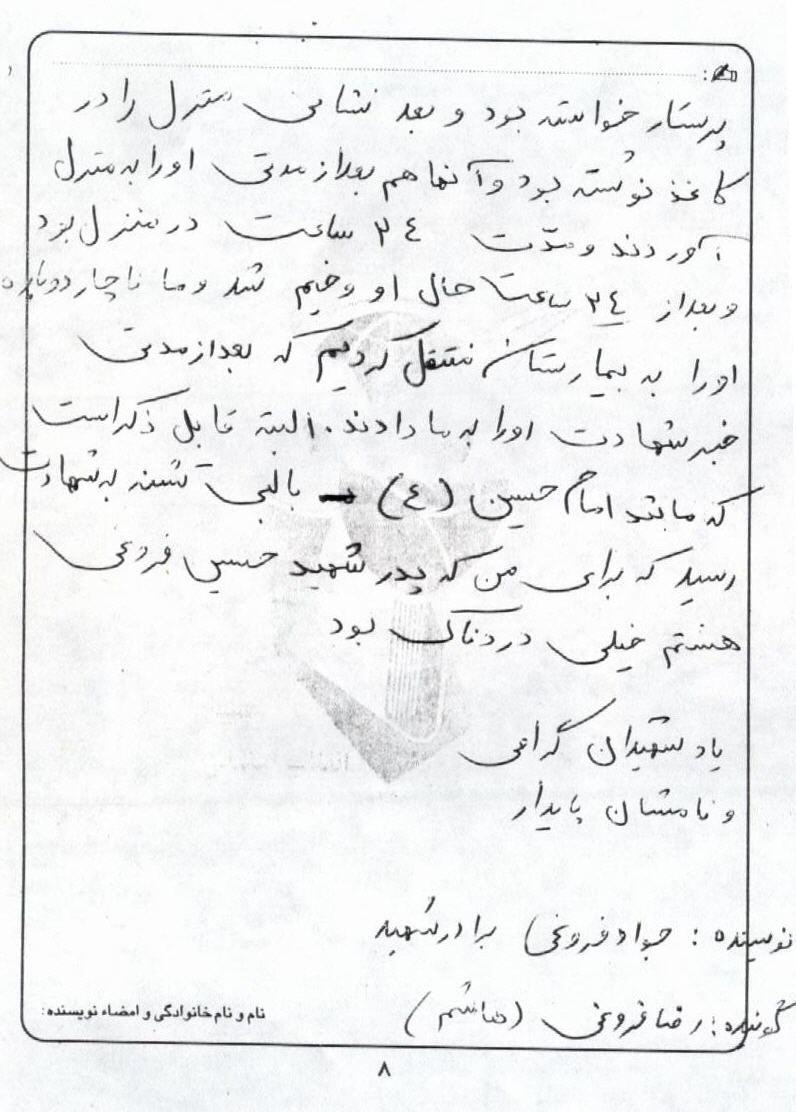 پرستار خواسته بود و بعد نشانی منزل را در
کاغذ نوشته بود و آنها هم بعد از مدتی او را به منزل
آوردند و مدّت ٢٤ ساعت در منزل بود
و بعد از ٢٤ ساعت حال او وخیم شد و ما ناچار دوباره
او را به بیمارستان منتقل کردیم که بعد از مدتی
خبر شهادت او را به ما دادند. البته قابل ذکر است
که مانند امام حسین (ع) بالبی تشنه به شهادت
رسید که برای من که پدر شهید حسین فروغی
هستم خیلی دردناک بود
یاد شهیدان گرامی
و نامشان پایدار
نویسنده : جواد فروغی برادر شهید
گوینده : رضا فروغی
نام و نام خانوادگی و امضاء نویسنده:
٨